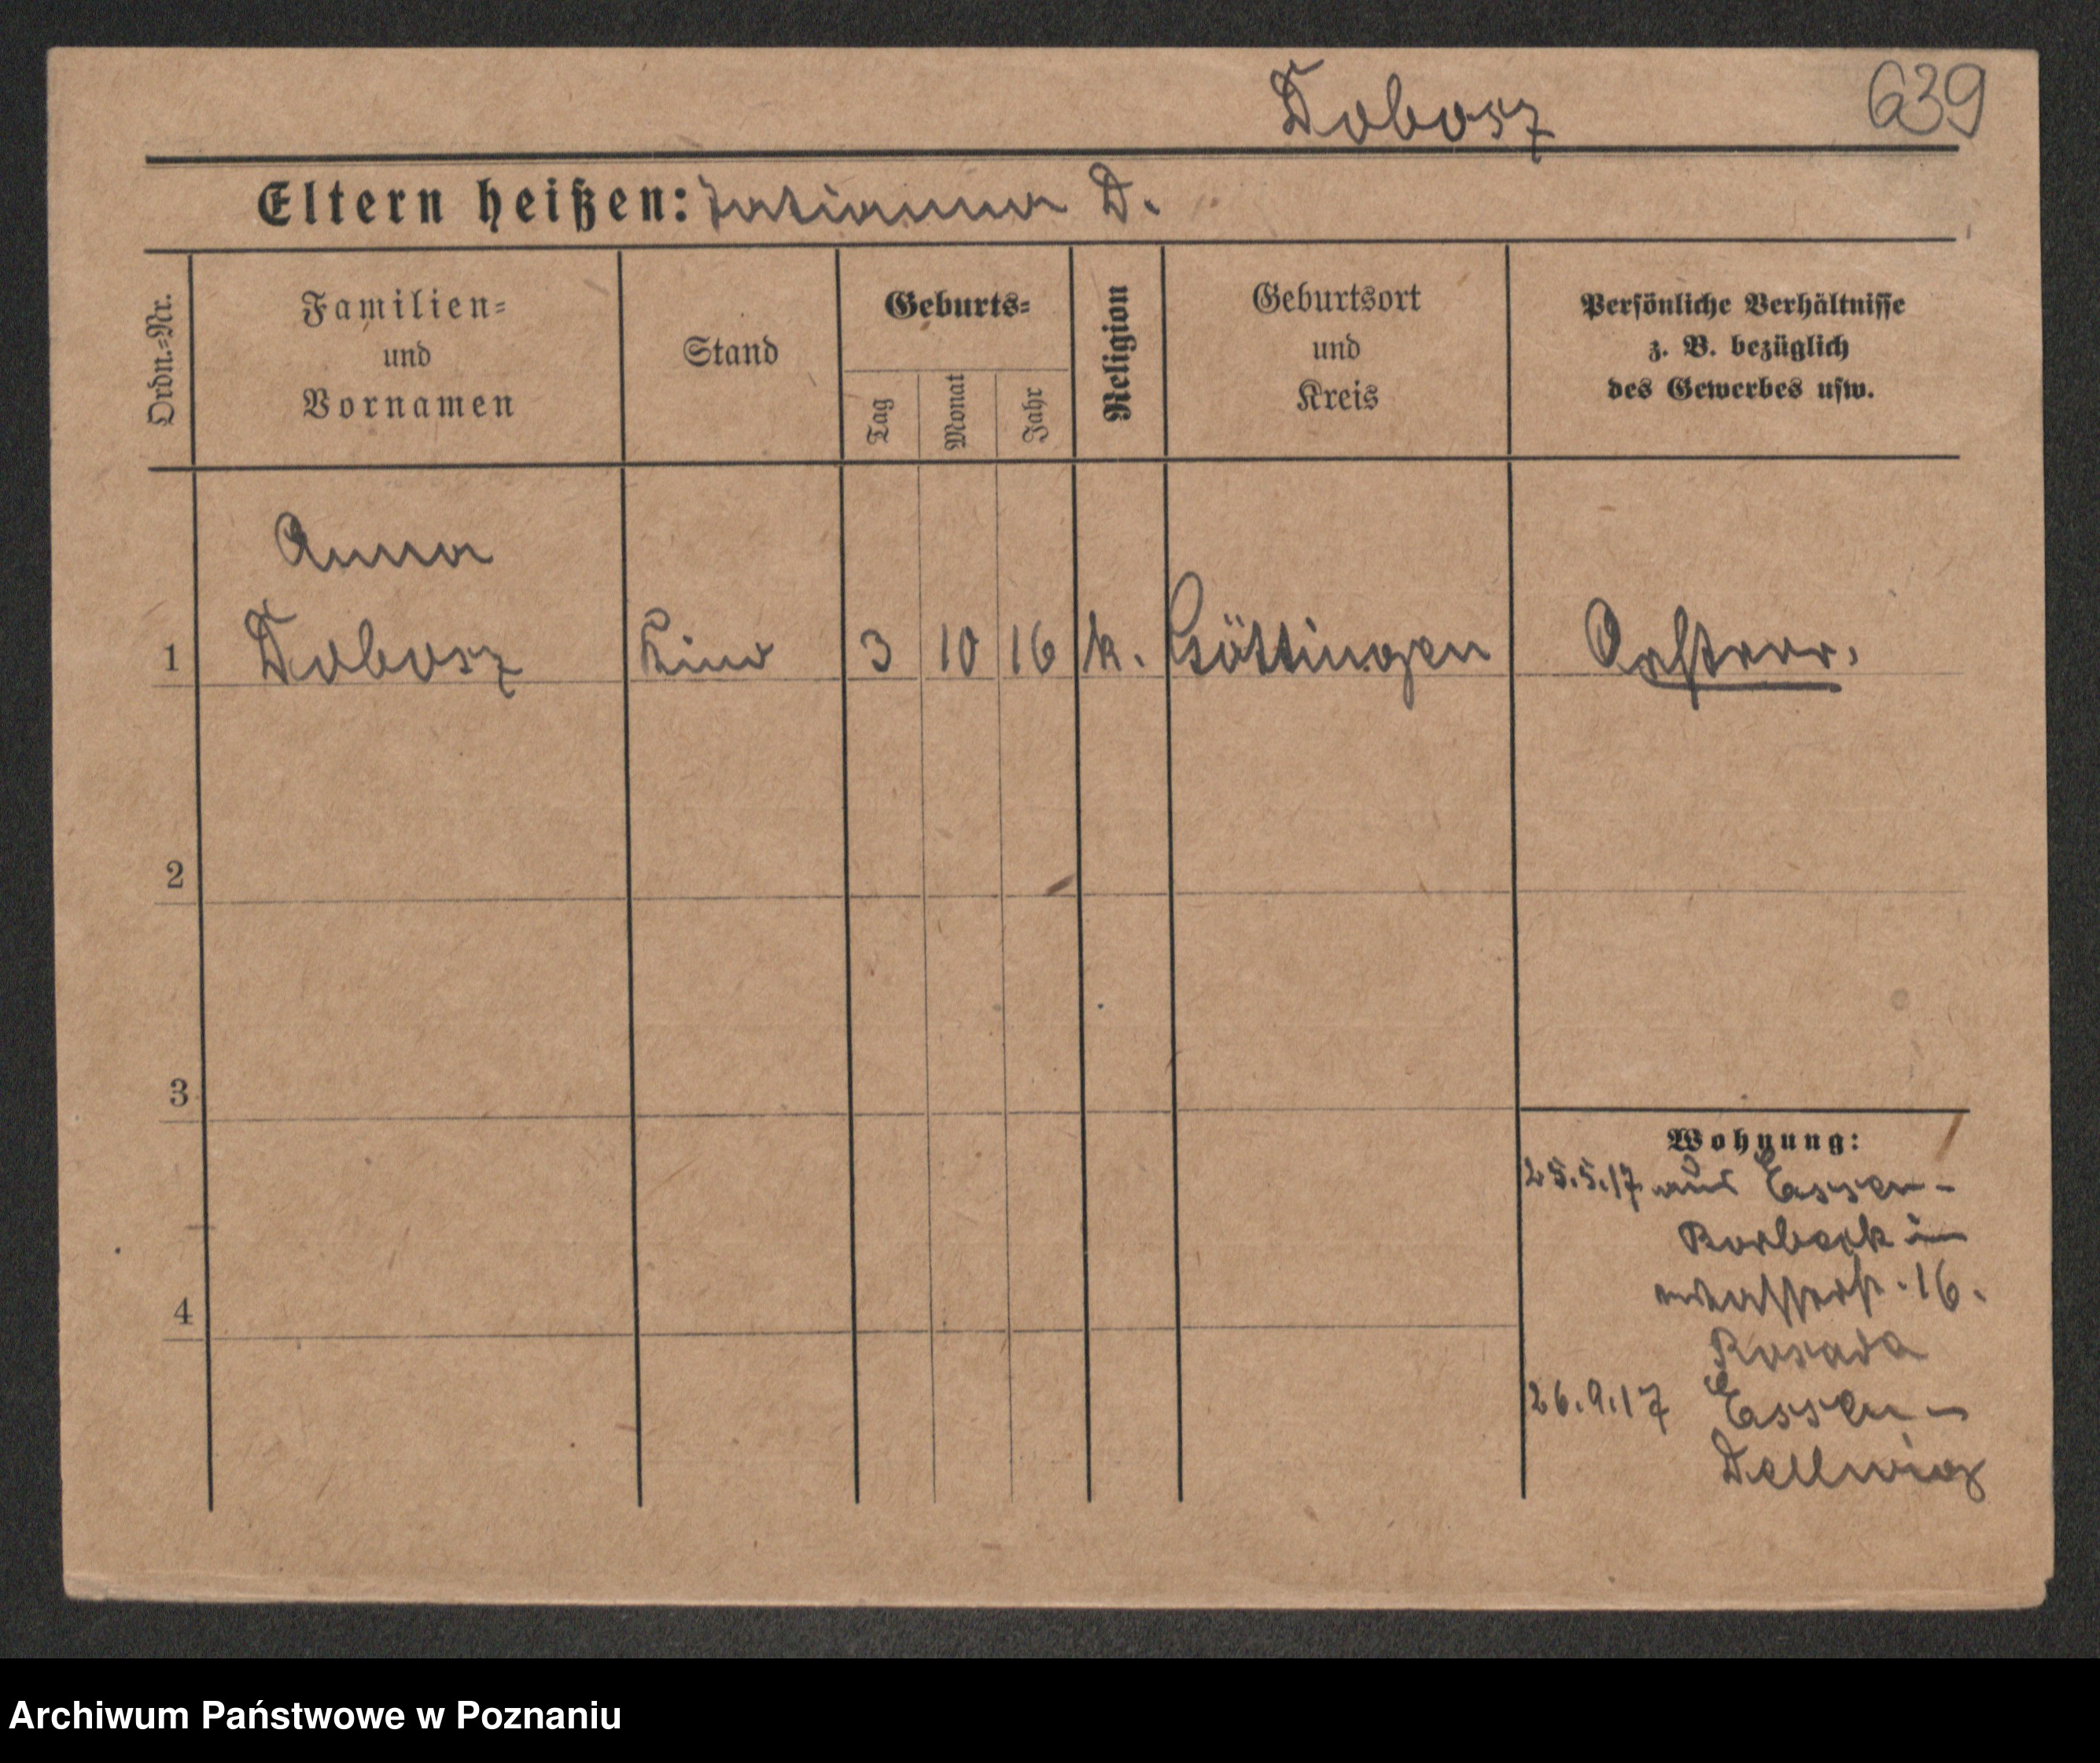 Dobosz
639
Eltern heißen: Tatianna D.
Ordn.=Nr.
Familien=
und
Vornamen
Stand
Geburts=
Tag
Monat
Jahr
Religion
Geburtsort
und
Kreis
Persönliche Verhältnisse
z. B. bezüglich
des Gewerbes usw.
Anna
1 Dobosz Kind 3 10 16 k. Göttingen Oesterr.
2
3
4
Wohnung:
25.5.17 aus Essen-
Borbeck in
16.
Rosada
26.9.17 Essen-
Dellwig
Archiwum Państwowe w Poznaniu